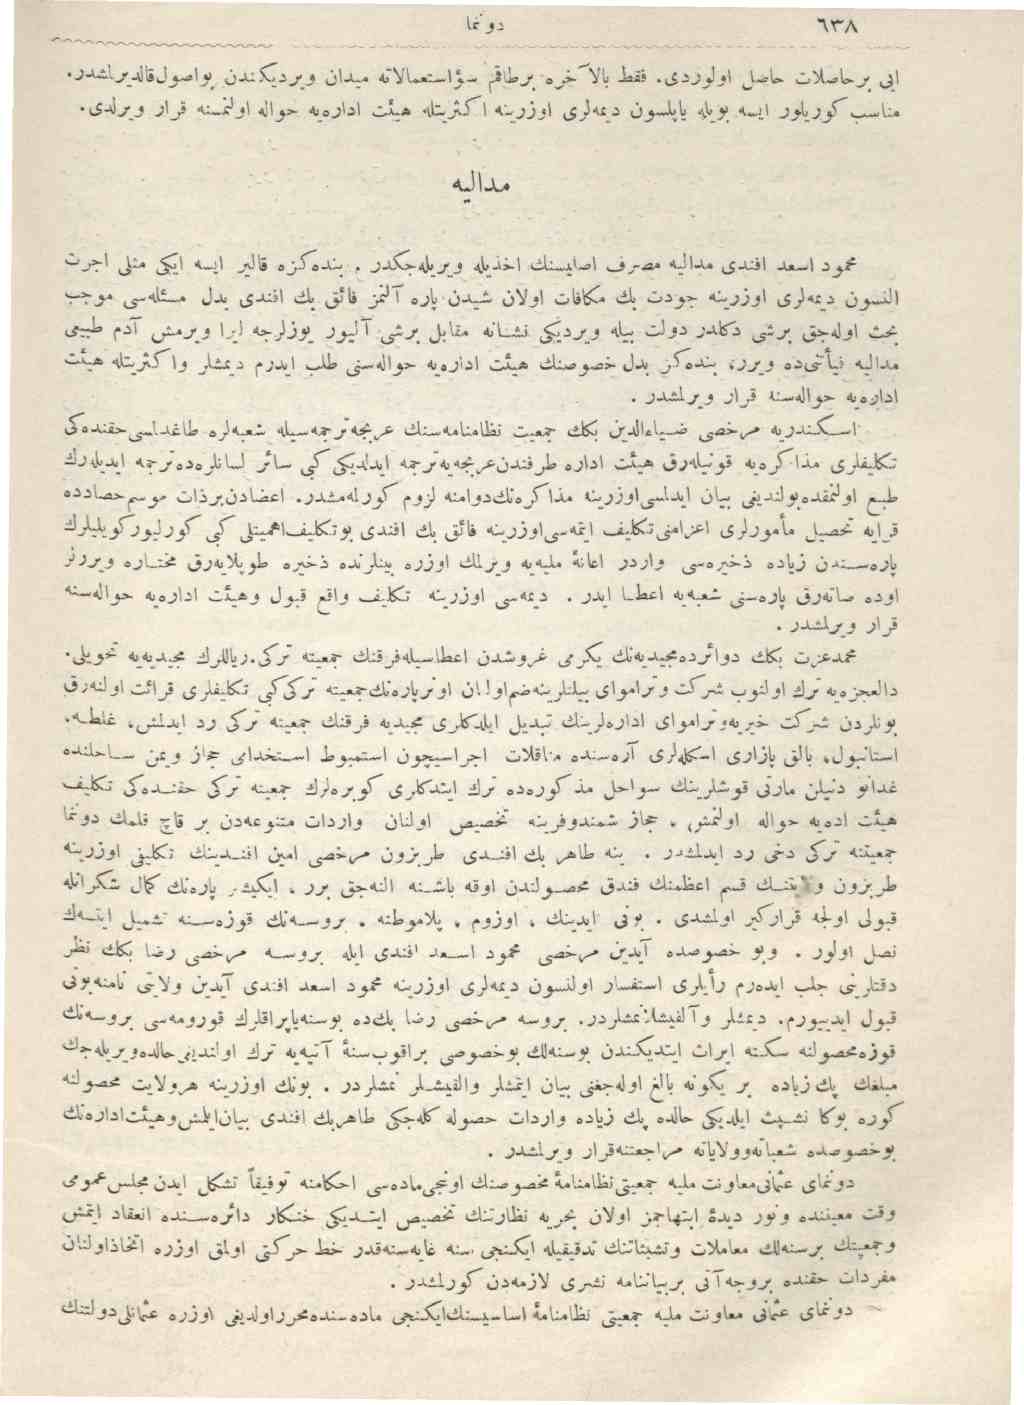 ٦٣٨
دونما
ایی بر حاصلات حاصل اولوردی. فقط بالآخره برطاقم سؤاستعمالاته میدان ویردیکندن بواصول قالدیرلمشدر.
مناسب کوریلور ایسه بویله یاپلسون دیمه‌لری اوزرینه اکثریتله هیئت اداره‌یه حواله اولنمسنه قرار ویرلدی.
مدالیه
محمود اسعد افندی مدالیه مصرف اصابیسنك اخذیله ویریله‌جکدر. بنده‌کزه قالیر ایسه ایکی مثلی اجرت
النسون دیمه‌لری اوزرینه جودت بك مکافات اولان شیدن پاره آلنمز فائق بك افندی بدل مسئله‌سی موجب
بحث اوله‌جق برشی دکلدر دولت بیله ویردیکی نشانه مقابل برشی آلیور یوزلرجه لیرا ویرمش آدم طبیعی
مدالیه فیأتنی‌ده ویرر، بنده‌کز بدل خصوصنك هیئت اداره‌یه حواله‌سنی طلب ایدرم دیمشلر واکثریتله هیئت
اداره‌یه حواله‌سنه قرار ویرلمشدر.
اسکندریه مرخصی ضیاءالدین بکك جمعیت نظامنامه‌سنك عربجه ترجمه‌سیله شعبه‌لره طاغدلمسی حقنده‌کی
تکلیفلری مذاکره‌یه قونیله‌رق هیئت اداره طرفندن عربجه‌یه ترجمه ایدلدیکی کبی سائر لسانلره‌ده ترجمه ایدیله‌رك
طبع اولنمقده بولندیغی بیان ایدلمسی اوزرینه مذاکره‌نك دوامنه لزوم کورلمه‌مشدر. اعضادن برذات موسم حصادده
قرایه تحصیل مأمورلری اعزامنی تکلیف ایتمه‌سی اوزرینه فائق بك افندی بوتکلیف اهمیتلی کبی کورلیور کویلیلرك
پاره‌سندن زیاده ذخیره‌سی واردر اعانهٔ ملیه‌یه ویرلمك اوزره بینلرنده ذخیره طوپلایه‌رق مختاره ویررلر
اوده صاته‌رق پاره‌سنی شعبه‌یه اعطا ایدر. دیمه‌سی اوزرینه تکلیف واقع قبول وهیئت اداره‌یه حواله‌سنه
قرار ویرلمشدر.
محمدعزت بکك دوائرده مجیدیه‌نك یکرمی غروشدن اعطاسیله فرقنك جمعیته ترکی. ریاللرك مجیدیه‌یه تحویلی.
دالعجزه‌یه ترك اولنوب شرکت وتراموای بیلتلرینه ضم اولنان اونر پاره‌نك جمعیته ترکی کبی تکلیفلری قرائت اولنه‌رق
بونلردن شرکت خیریه وتراموای اداره‌لرینك تبدیل ایلدکلری مجیدیه فرقنك جمعیته ترکی رد ایدلمش، غلطه،
استانبول، بالق پازاری اسکله‌لری آره‌سنده مناقلات اجراسیچون استمبوط استخدامی حجاز ویمن ساحلنده
غدانو دنیلن مارتی قوشلرینك سواحل مذکوره‌ده ترك ایتدکلری کوبره‌لرك جمعیته ترکی حقنده‌کی تکلیف
هیئت اده‌یه حواله اولنمش. حجاز شمندوفرینه تخصیص اولنان واردات متنوعه‌دن بر قاچ قلمك دونما
جمعیتنه ترکی دخی رد ایدلمشدر. ینه طاهر بك افندی طربزون مرخصی امین افندینك تکلیفی اوزرینه
طربزون ولایتنك قسم اعظمنك فندق محصولندن اوقه باشنه النه‌جق برر، ایکیشر پاره‌نك کمال شکرانله
قبولی اولجه قرارکیر اولمشدی. بونی آیدینك، اوزوم، پلاموطنه. بروسه‌نك قوزه‌سنه تشمیل ایتسه‌ك
نصل اولور. وبو خصوصده آیدین مرخصی محمود اسعد افندی ایله بروسه مرخصی رضا بکك نظر
دقتلرینی جلب ایده‌رم رأیلری استفسار اولنسون دیمه‌لری اوزرینه محمود اسعد افندی آیدین ولایتی نامنه بونی
قبول ایدییورم. دیمشلر وآلقیشلانمشلردر. بروسه مرخصی رضا بك‌ده بوسنه یاپراقلرك قورومه‌سی بروسه‌نك
قوزه محصولنه سکته ایراث ایتدیکندن بوسنه‌لك بوخصوصی براقوب سنهٔ آتیه‌یه ترك اولندیغی حالده ویریله‌جك
مبلغك پك زیاده بر یکونه بالغ اوله‌جغنی بیان ایتمشلر والقیشلر نمشلردر. بونك اوزرینه هرولایت محصولنه
کوره بوکا تشبث ایلدیکی حالده پك زیاده واردات حصوله کله‌جکی طاهربك افندی بیان ایلمش وهیئت اداره‌نك
بوخصوصده شعباته وولایاته مراجعتنه قرار ویرلمشدر.
دونمای عثمانی معاونت ملیه جمعیتی نظامنامهٔ مخصوصنك اونجی ماده‌سی احکامنه توفیقاً تشکل ایدن مجلس عمومی
وقت معیننده ونور دیدهٔ ابتهاجمز اولان بحریه نظارتنك تخصیص ایتدیکی خنکار دائره‌سنده انعقاد ایتمش
وجمعیتك برسنه‌لك معاملات وتشبثاتنك تدقیقیله ایکنجی سنه غایه‌سنه‌قدر خط حرکتی اولمق اوزره اتخاذ اولنان
مقررات حقنده بروجه آتی بربیاننامه نشری لازمه‌دن کورلمشدر.
دونمای عثمانی معاونت ملیه جمعیتی نظامنامهٔ اساسیسنك ایکنجی ماده‌سنده محرر اولدیغی اوزره عثمانلی دولتنك